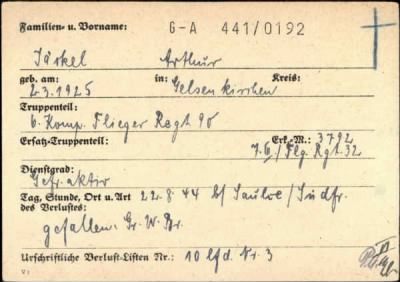 Familien- u. Vorname: G-A 441/0192
Jäckel Arthur
geb. am: in: Kreis:
2.3.1925 Gelsenkirchen
Truppenteil:
6. Komp. Flieger Regt. 90
Ersatz-Truppenteil: Erk.-M.: 3792
7.6./Flg. Rgt. 32
Dienstgrad:
Gefr. aktiv
Tag, Stunde, Ort u. Art 22.8.44 /Südfr.
des Verlustes:
gefallen. Gr. W. Br.
Urschriftliche Verlust-Listen Nr.: 10 lfd. Nr. 3
V 1